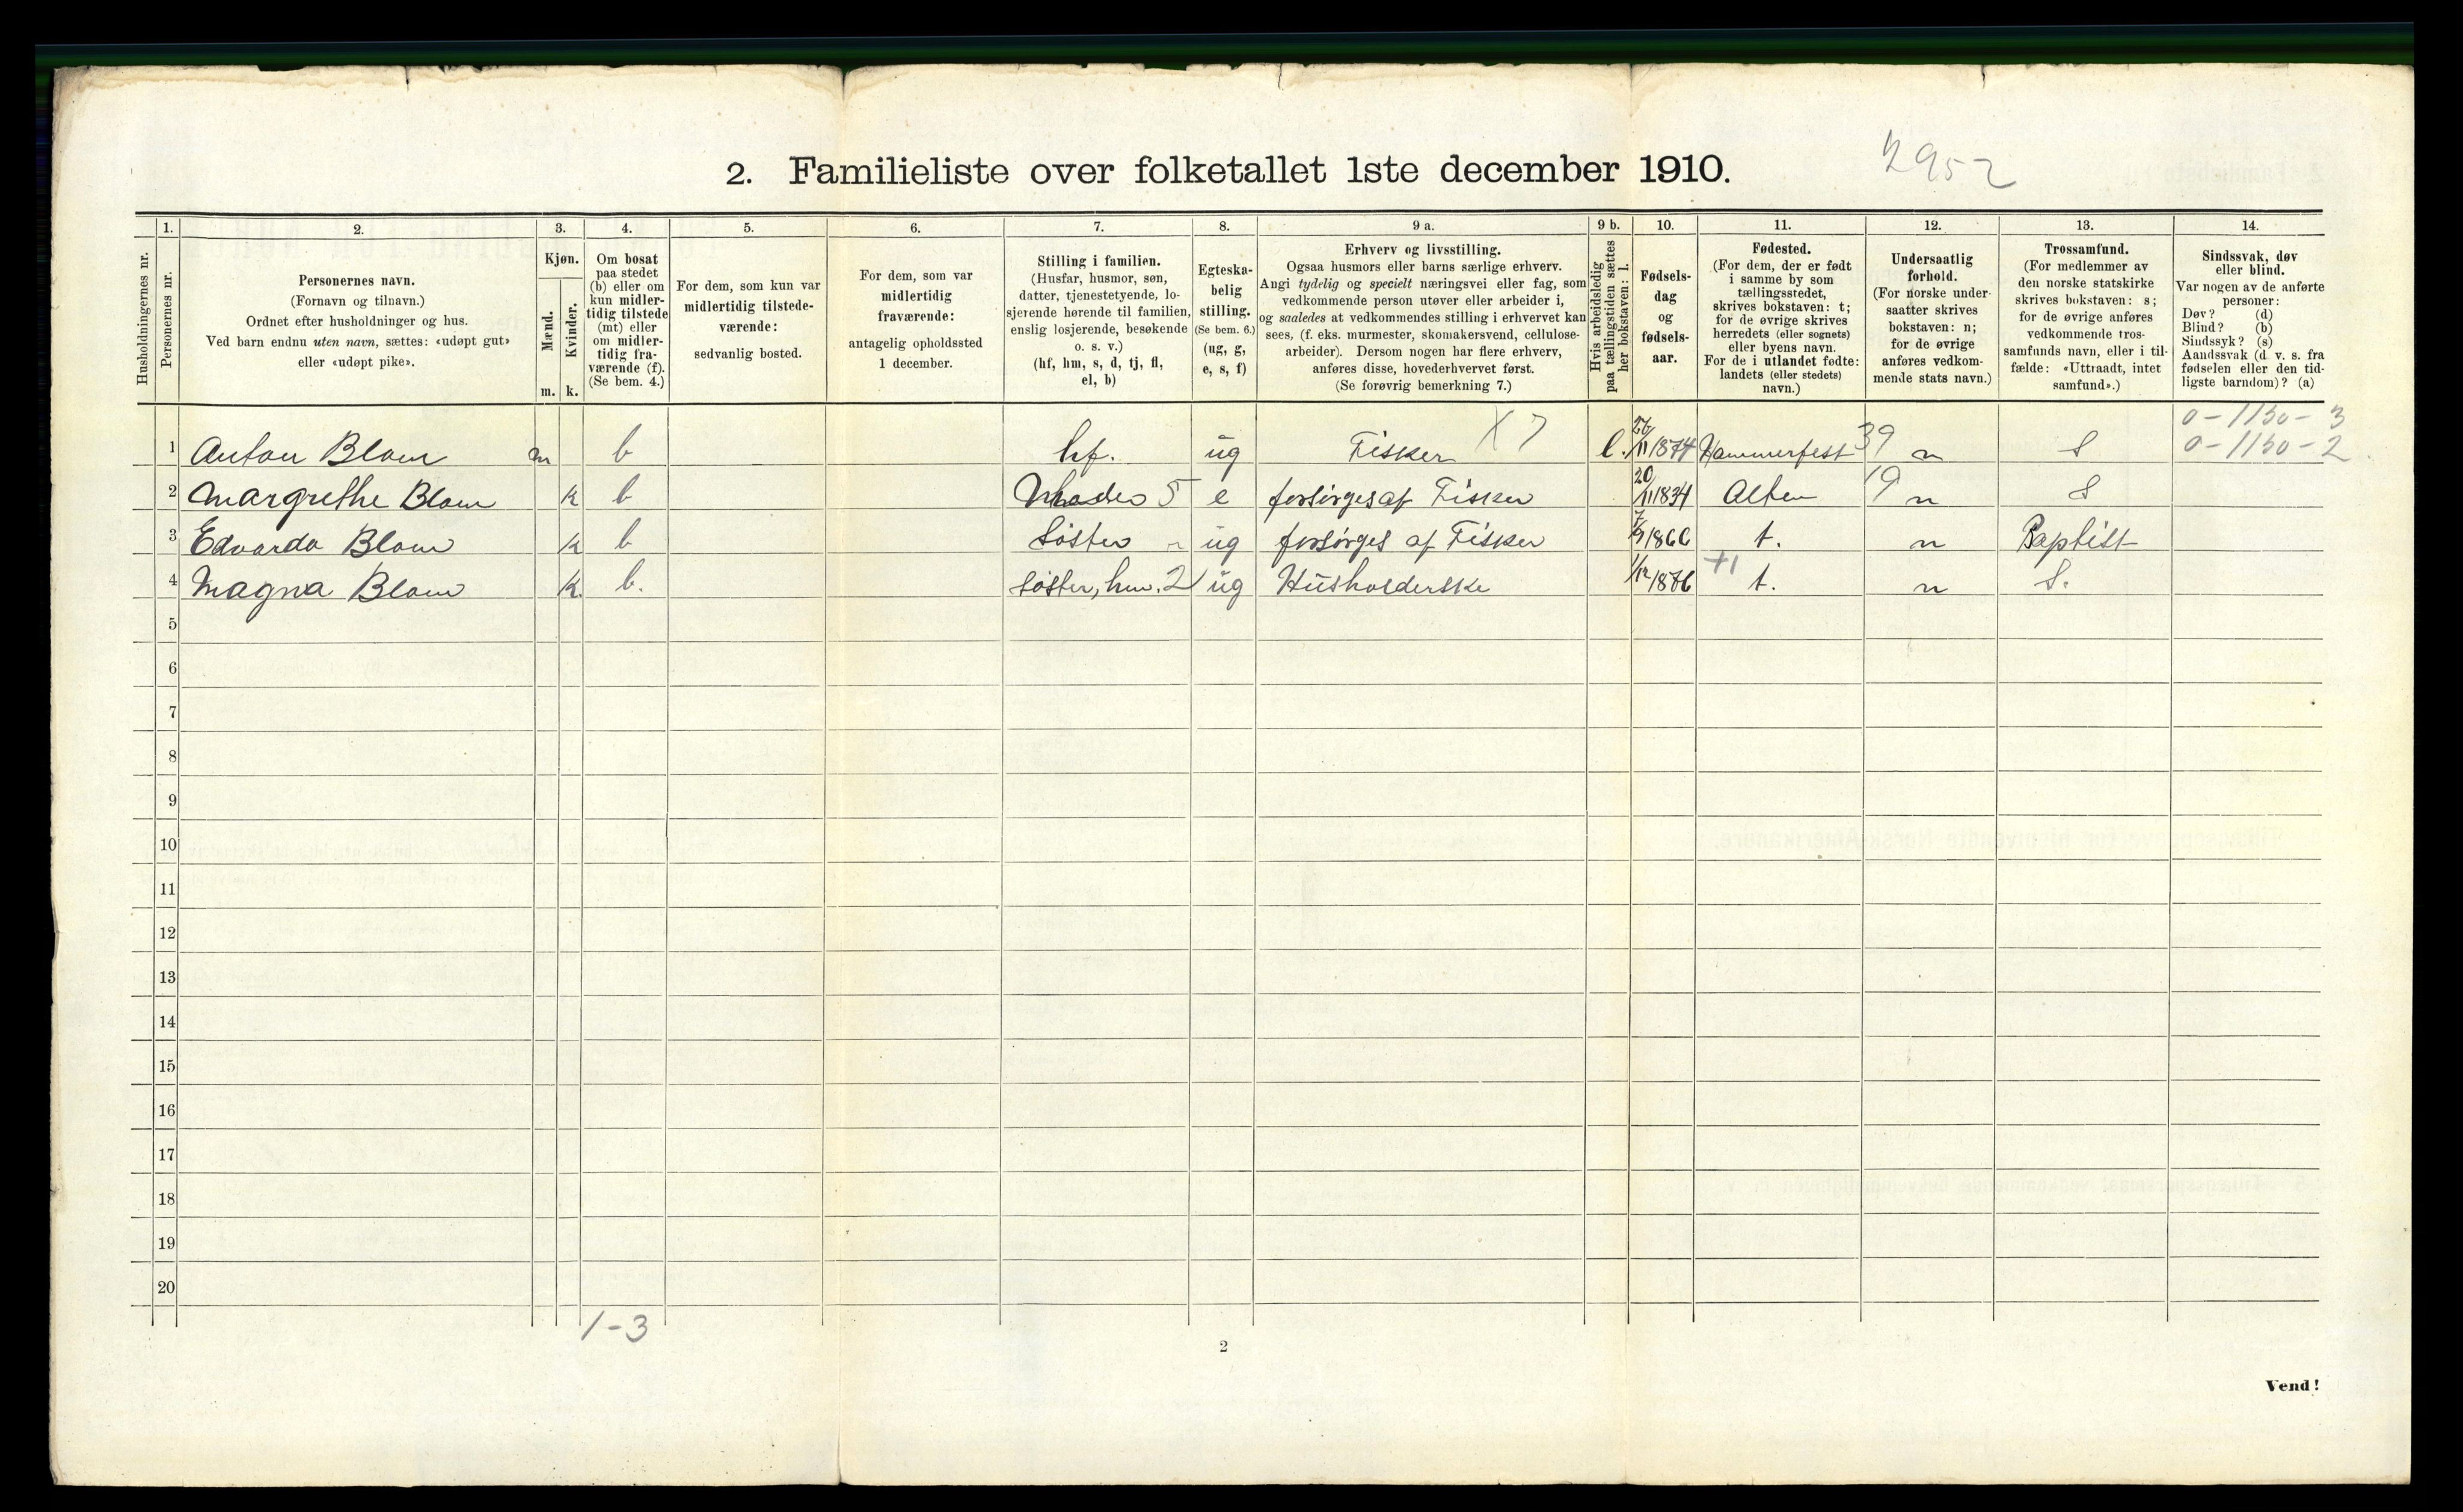 2. Familieliste over folketallet 1ste december 1910.
2952
1. 2. 3. 4. 5. 6. 7. 8. 9 a. 9 b. 10. 11. 12. 13. 14.
Husholdningernes nr.
Personernes nr.
Personernes navn.
(Fornavn og tilnavn.)
Ordnet efter husholdninger og hus.
Ved barn endnu uten navn, sættes: «udøpt gut»
eller «udøpt pike».
Kjøn.
Mænd.
Kvinder.
m. k.
Om bosat
paa stedet
(b) eller om
kun midler-
tidig tilstede
(mt) eller
om midler-
tidig fra-
værende (f).
(Se bem. 4.)
For dem, som kun var
midlertidig tilstede-
værende:
sedvanlig bosted.
For dem, som var
midlertidig
fraværende:
antagelig opholdssted
1 december.
Stilling i familien.
(Husfar, husmor, søn,
datter, tjenestetyende, lo-
sjerende hørende til familien,
enslig losjerende, besøkende
o. s. v.)
(hf, hm, s, d, tj, fl,
el, b)
Egteska-
belig
stilling.
(Se bem. 6.)
(ug, g,
e, s, f)
Erhverv og livsstilling.
Ogsaa husmors eller barns særlige erhverv.
Angi tydelig og specielt næringsvei eller fag, som
vedkommende person utøver eller arbeider i,
og saaledes at vedkommendes stilling i erhvervet kan
sees, (f. eks. murmester, skomakersvend, cellulose-
arbeider). Dersom nogen har flere erhverv,
anføres disse, hovederhvervet først.
(Se forøvrig bemerkning 7.)
Hvis arbeidsledig
paa tællingstiden sættes
her bokstaven: l.
Fødsels-
dag
og
fødsels-
aar.
Fødested.
(For dem, der er født
i samme by som
tællingsstedet,
skrives bokstaven: t;
for de øvrige skrives
herredets (eller sognets)
eller byens navn.
For de i utlandet fødte:
landets (eller stedets)
navn.)
Undersaatlig
forhold.
(For norske under-
saatter skrives
bokstaven: n;
for de øvrige
anføres vedkom-
mende stats navn.)
Trossamfund.
(For medlemmer av
den norske statskirke
skrives bokstaven: s;
for de øvrige anføres
vedkommende tros-
samfunds navn, eller i til-
fælde: «Uttraadt, intet
samfund».)
Sindssvak, døv
eller blind.
Var nogen av de anførte
personer:
Døv? (d)
Blind? (b)
Sindssyk? (s)
Aandssvak (d. v. s. fra
fødselen eller den tid-
ligste barndom)? (a)
0-1130-3
1 Anton Blom m b hf. ug Fisker X7 l. 26/11 1874 Hammerfest 39 n S 0-1130-2
2 Margrethe Blom k b Moder 5 e forsørges af Fisker 20/11 1834 Alten 19 n S
3 Edvarda Blom k b Søster ug forsørges af Fisker 7/9 1866 t. n Baptist
4 Magna Blom k. b. Søster, hm. 2 ug Husholderske 1/12 1876 +1 t. n S.
5
6
7
8
9
10
11
12
13
14
15
16
17
18
19
20
1-3
2
Vend!